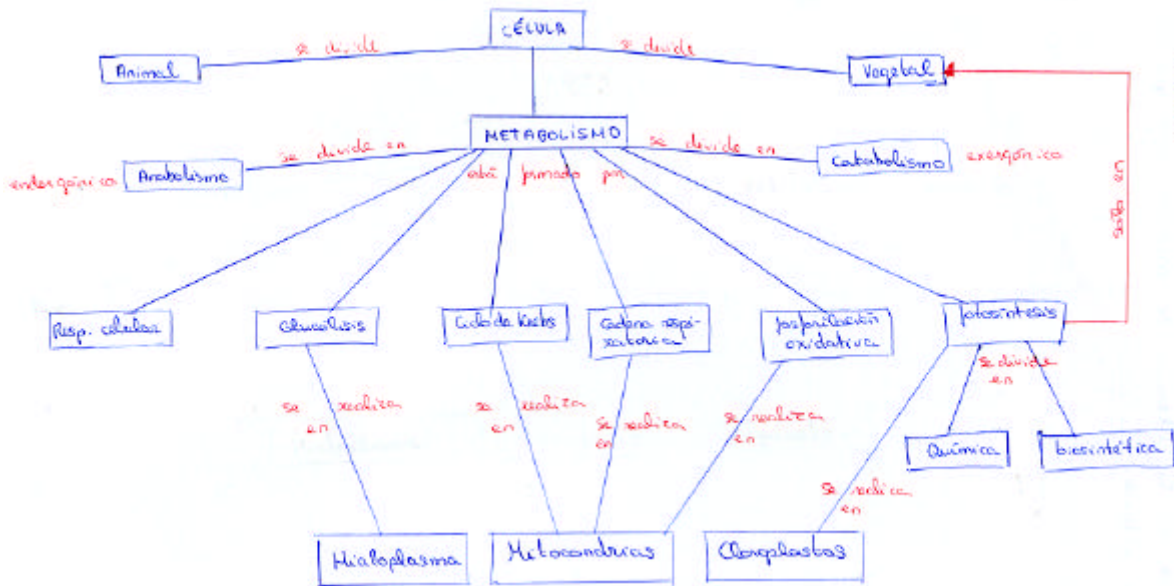 CÉLULA
se divide
se divide
Animal
Vegetal
METABOLISMO
se divide en
se divide en
endergónico
Anabolismo
Catabolismo
exergónico
está formado por
sólo en
Resp. celular
Glucolisis
Ciclo de Krebs
Cadena respi-
ratoria
fosforilación
oxidativa
fotosíntesis
se divide
en
se realiza
en
se realiza
en
se realiza
en
se realiza
en
Química
biosintética
se realiza
en
Hialoplasma
Mitocondrias
Cloroplastos